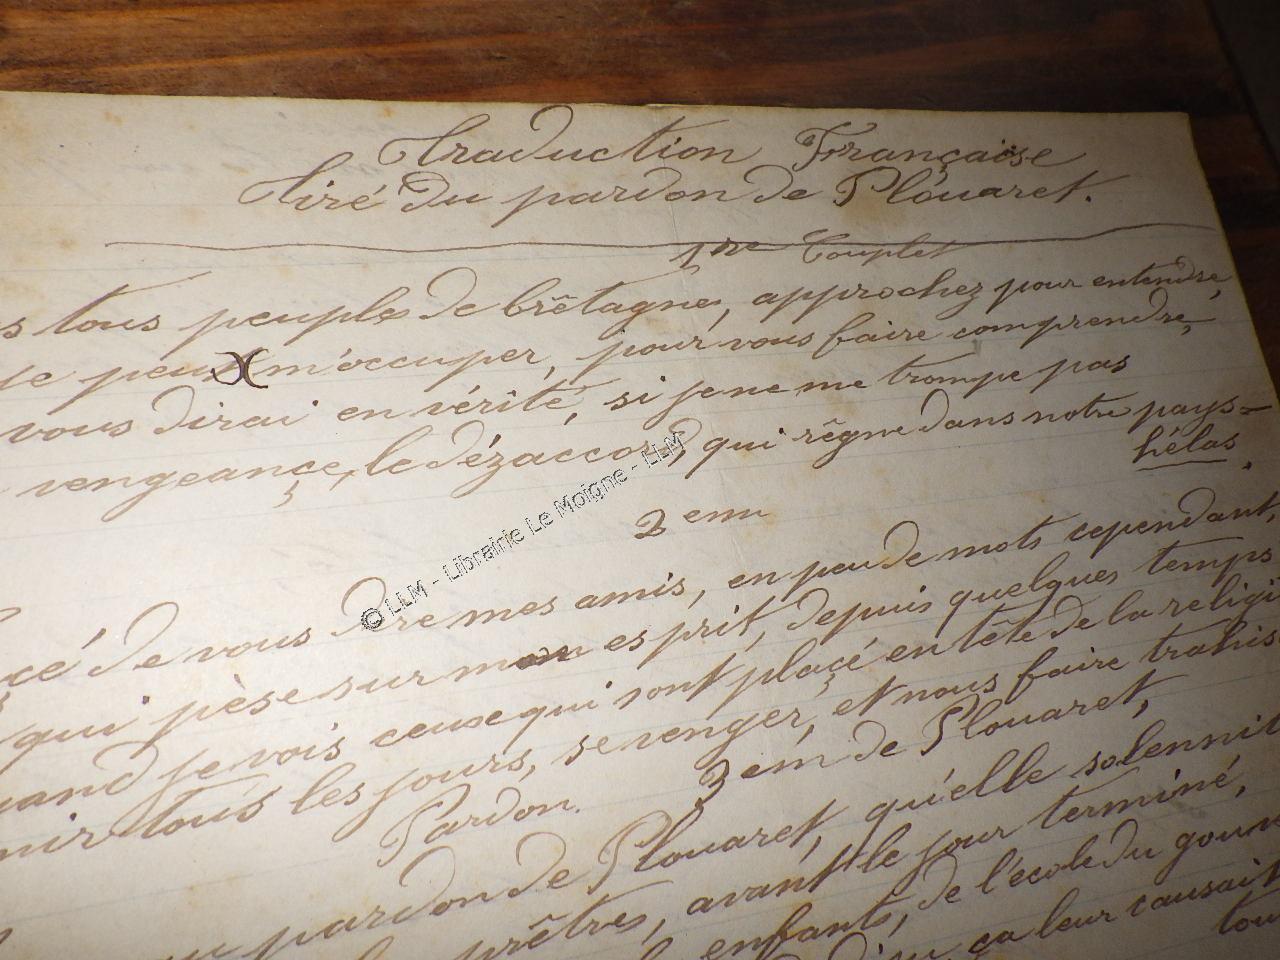 Traduction Française
Tiré du pardon de Plouaret.
1re Couplet
tous peuples de brêtagne, approchez pour entendre,
je peux m'occuper, pour vous faire comprendre,
vous dirai en vérité, si je ne me trompe pas
vengeance, le dézaccord, qui rêgne dans notre pays=
hélas.
2em
de vous dire mes amis, en peu de mots cependant,
qui pèse sur mon esprit, depuis quelques temps
quand je vois ceuse qui sont plaçé en tête de la religi
tous les jours, se venger, et nous faire trahis
Pardon. 3em de Plouaret,
pardon de Plouaret, qu'elle solennit
prêtres, avant le jour terminé,
enfants, de l'école du gouv
ça leur causait
tou
© LLM - Librairie Le Moigne - LLM